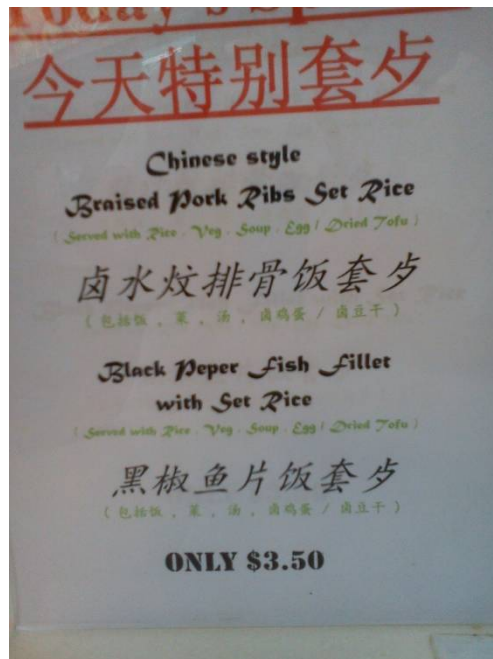 Today's Sp
今天特别套歺
Chinese style
Braised Pork Ribs Set Rice
( Served with Rice . Veg . Soup . Egg / Dried Tofu )
卤水炆排骨饭套歺
( 包括饭 , 菜 , 汤 , 卤鸡蛋 / 卤豆干 )
Black Peper Fish Fillet
with Set Rice
( Served with Rice . Veg . Soup . Egg / Dried Tofu )
黑椒鱼片饭套歺
( 包括饭 , 菜 , 汤 , 卤鸡蛋 / 卤豆干 )
ONLY $3.50